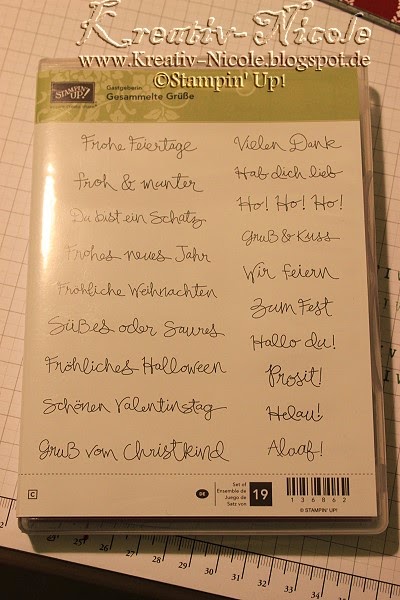 Kreativ-Nicole
www.Kreativ-Nicole.blogspot.de
©Stampin' Up!
STAMPIN' UP!
Gastgeberin
Gesammelte Grüße
Frohe Feiertage
froh & munter
Du bist ein Schatz
Frohes neues Jahr
Fröhliche Weihnachten
Süßes oder Saures
Fröhliches Halloween
Schönen Valentinstag
Gruß vom Christkind
Vielen Dank
Hab dich lieb
Ho! Ho! Ho!
Gruß & Kuss
Wir feiern
Zum Fest
Hallo du!
Prosit!
Helau!
Alaaf!
C
DE
Set of
Ensemble de
Juego de
Satz von
19
136862
© STAMPIN' UP!
22 23 24 25 26 27 28 29 30 31 32 33 34 35